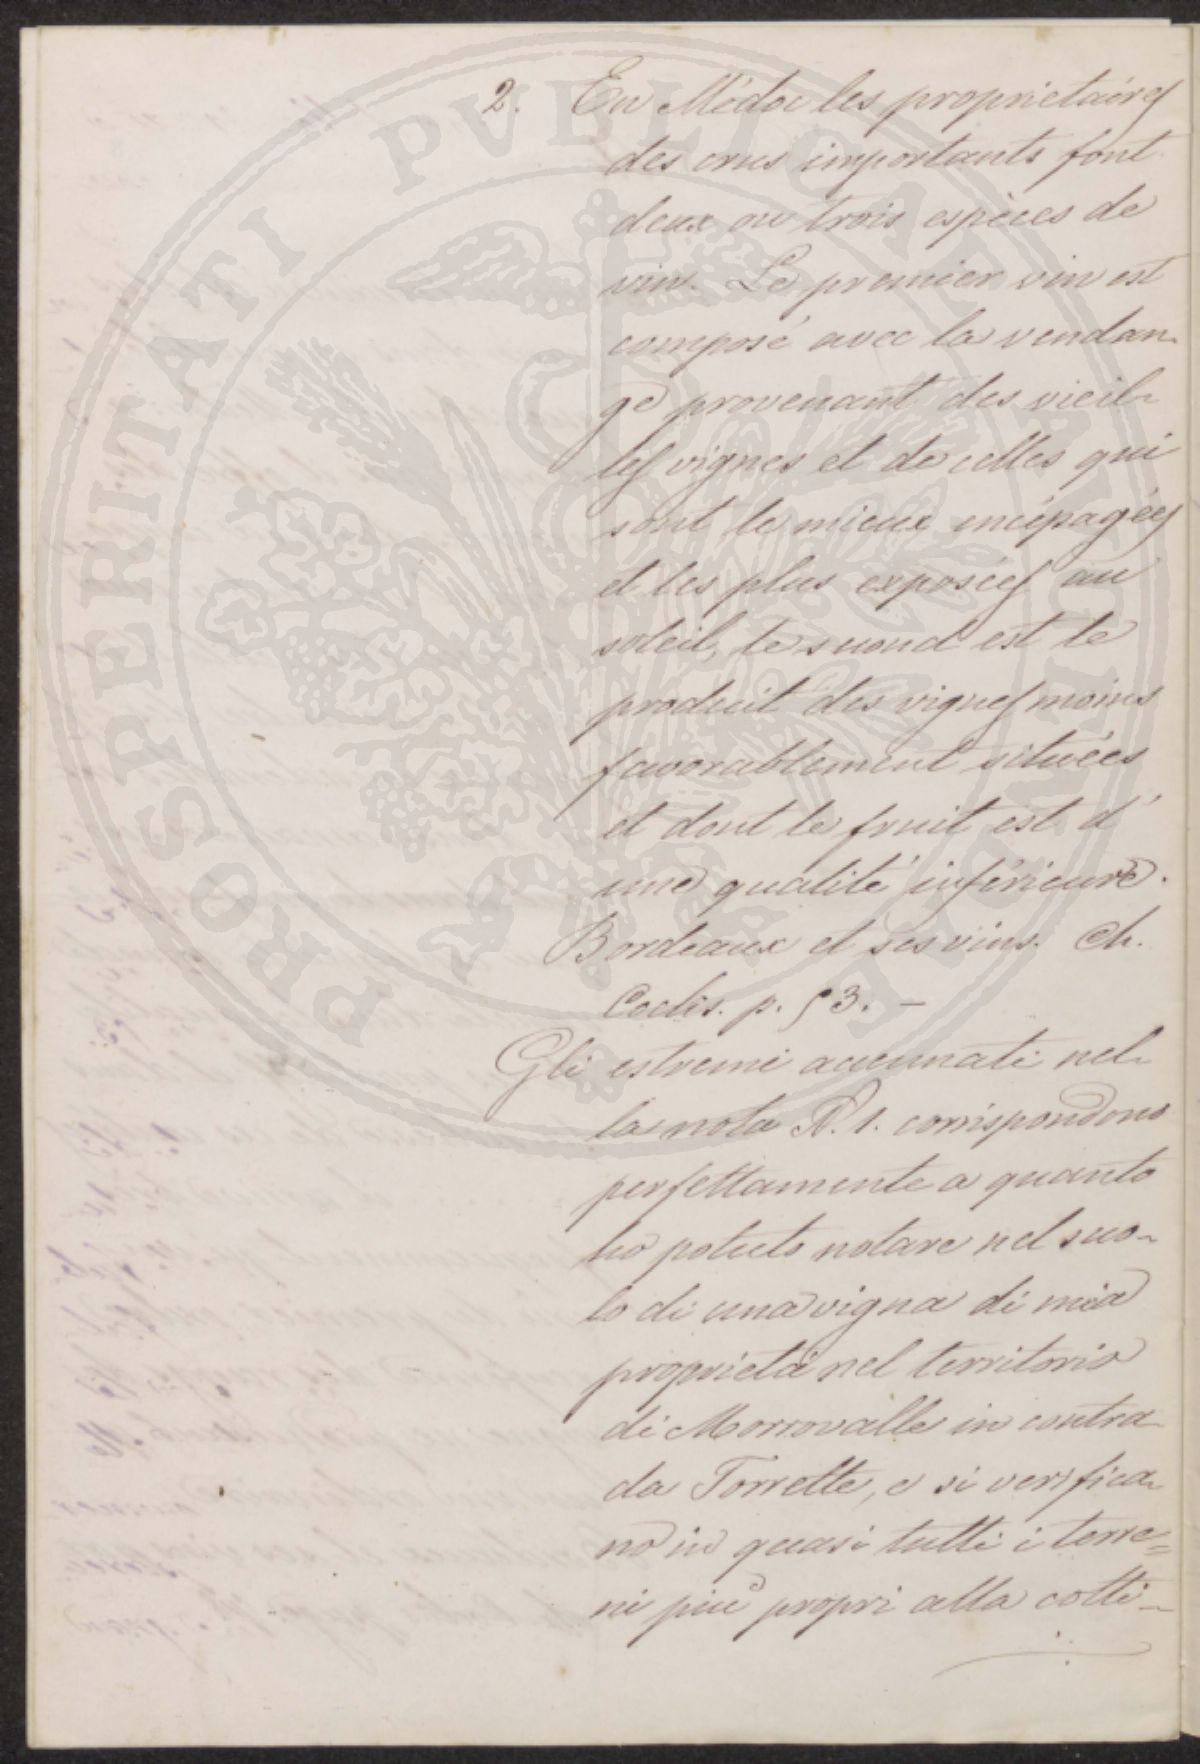 2. En Médoc les proprietaires
des crus importants font
deux ou trois espèces de
vin. Le premier vin est
composé avec la vendan-
ge provenant des vieil-
les vignes et de celles qui
sont le mieux encépagées
et les plus exposées au
soleil, le second est le
produit des vignes moins
favorablement situées
et dont le fruit est d'
une qualité inférieure.
Bordeaux et ses vins. Ch.
Cocks. p. 53. —
Gli estremi accennati nel-
la nota N. 1. corrispondono
perfettamente a quanto
ho potuto notare nel suo-
lo di una vigna di mia
proprietà nel territorio
di Morrovalle in contra-
da Torrette, e si verifica-
no in quasi tutti i terre=
ni più propri alla colti-
PROSPERITATI PVBLICAE AVGENDAE